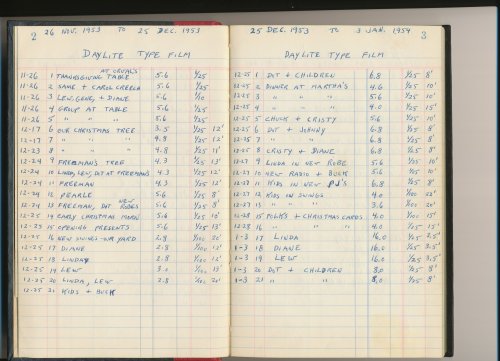 2 26 NOV. 1953 TO 25 DEC. 1953
DAYLITE TYPE FILM
AT ORVAL'S
11-26 1 THANKSGIVING TABLE 5.6 1/25
11-26 2 SAME + CAROL CREECH 5.6 1/25
11-26 3 LEW, GENE, + DIANE 5.6 1/10
11-26 4 GROUP AT TABLE 5.6 1/25
11-26 5 " " " 5.6 1/25
12-17 6 OUR CHRISTMAS TREE 3.5 1/25 12'
12-17 7 " " " 4.8 1/25 12'
12-23 8 " " " 4.8 1/25 11'
12-24 9 FREEMAN'S TREE 4.3 1/25 13'
12-24 10 LINDA, LEW, DOT AT FREEMAN'S 4.3 1/25 12'
12-24 11 FREEMAN 4.3 1/25 12'
12-24 12 PEARLE 5.6 1/25 8'
NEW
12-24 13 FREEMAN, DOT ROBES 5.6 1/25 8'
12-25 14 EARLY CHRISTMAS MORN 5.6 1/25 10'
12-25 15 OPENING PRESENTS 5.6 1/25 13'
12-25 16 NEW SWINGS OUR YARD 2.8 1/100 20'
12-25 17 DIANE 2.8 1/100 12'
12-25 18 LINDA 2.8 1/100 12'
12-25 19 LEW 1/100
12-25 20 LINDA, LEW 2.8 1/100 20'
12-25 21 KIDS + BUCK
25 DEC. 1953 TO 3 JAN. 1954 3
DAYLITE TYPE FILM
12-25 1 DOT + CHILDREN 6.8 1/25 8'
12-25 2 DINNER AT MARTHA'S 4.6 1/25 10'
12-25 3 " " " 5.6 1/25 10'
12-25 4 " " " 4.0 1/25 15'
12-25 5 CHUCK + CRISTY 5.6 1/25 10'
12-25 6 DOT + JOHNNY 6.8 1/25 8'
12-25 7 " " " 6.8 1/25 8'
12-25 8 CRISTY + DIANE 6.8 1/25 8'
12-27 9 LINDA IN NEW ROBE 5.6 1/25 10'
12-27 10 NEW RADIO + BUCK 5.6 1/25 10'
12-27 11 KIDS IN NEW PJ'S 6.8 1/25 8'
12-27 12 KIDS IN SWINGS 4.0 1/100 20'
12-27 13 " " " 3.6 1/100 20'
12-28 15 FOLK'S + CHRISTMAS CARDS 4.0 1/100 15'
12-28 16 " " " 4.0 1/25 15'
1-3 17 LINDA 16.0 1/25 3.5'
1-3 18 DIANE 16.0 1/25 3.5'
1-3 19 LEW 16.0 1/25 3.5'
1-3 20 DOT + CHILDREN 8.0 1/25 8'
1-3 21 " " 8.0 1/25 8'